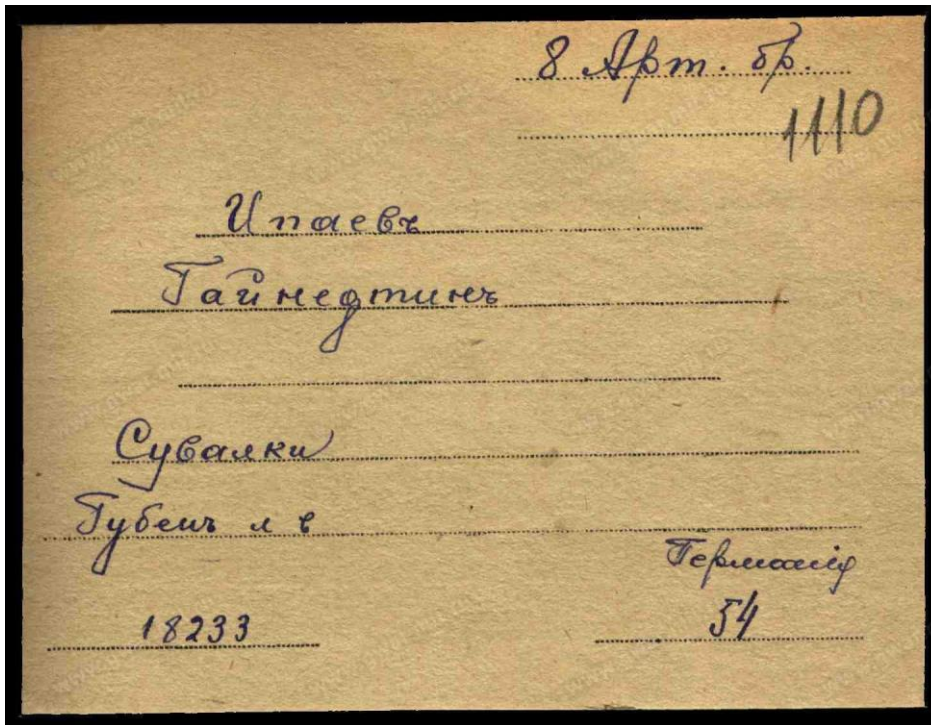 8 Арт. бр.
1110
Ипаевъ
Гайнедтинъ
Сувалки
Губенъ л в
Германія
18233
54